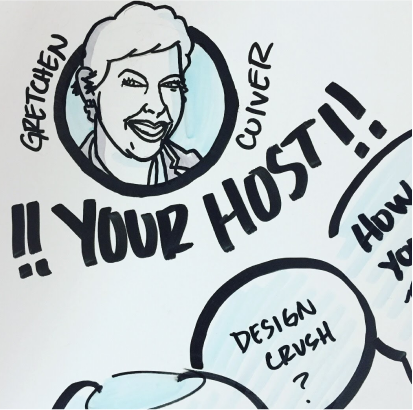 GRETCHEN
CULVER
!! YOUR HOST!!
HOW
YO
DESIGN
CRUSH
?